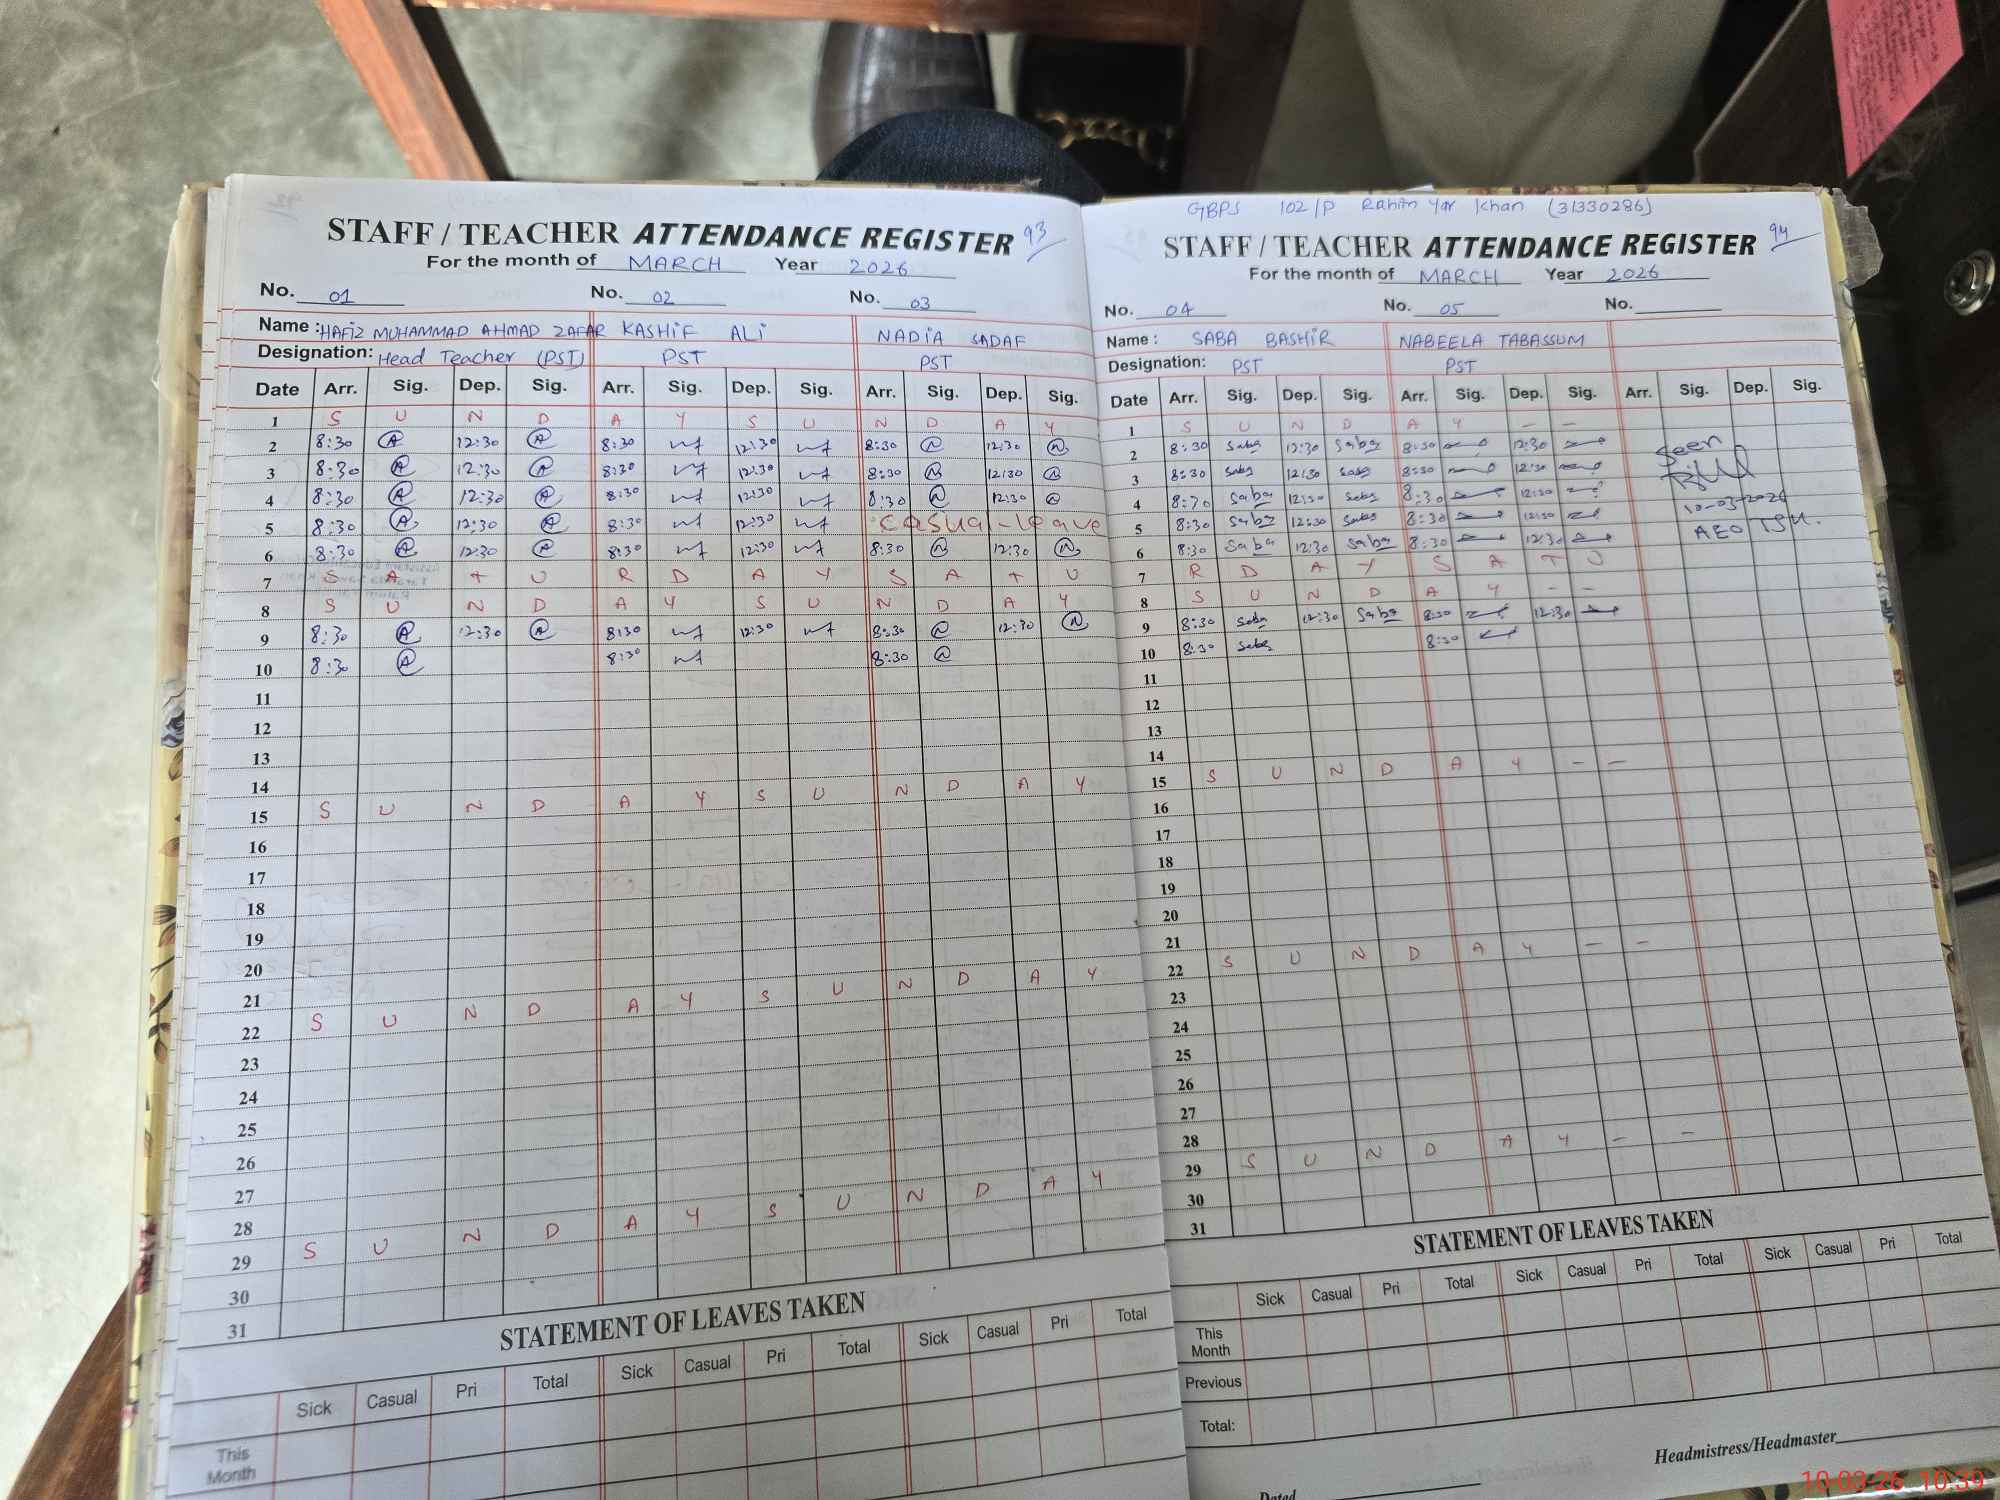 STAFF / TEACHER ATTENDANCE REGISTER 93
For the month of MARCH Year 2026
No. 01 No. 02 No. 03
Name : HAFIZ MUHAMMAD AHMAD ZAFAR KASHIF ALI NADIA SADAF
Designation: Head Teacher (PST) PST PST
Date Arr. Sig. Dep. Sig. Arr. Sig. Dep. Sig. Arr. Sig. Dep. Sig.
1 S U N D A Y S U N D A Y
2 8:30 A 12:30 A 8:30 12:30 8:30 N 12:30 N
3 8:30 A 12:30 A 8:30 12:30 8:30 N 12:30 N
4 8:30 A 12:30 A 8:30 12:30 8:30 N 12:30 N
5 8:30 A 12:30 A 8:30 12:30 Casual-leave
6 8:30 A 12:30 A 8:30 12:30 8:30 N 12:30 N
7 S A T U R D A Y S A T U
8 S U N D A Y S U N D A Y
9 8:30 A 12:30 A 8:30 12:30 8:30 N 12:30 N
10 8:30 A 8:30 8:30 N
11
12
13
14
15 S U N D A Y S U N D A Y
16
17
18
19
20
21
22 S U N D A Y S U N D A Y
23
24
25
26
27
28
29 S U N D A Y S U N D A Y
30
31
STATEMENT OF LEAVES TAKEN
Sick Casual Pri Total Sick Casual Pri Total Sick Casual Pri Total
This Month
GBPS 102/P Rahim Yar Khan (31330286)
STAFF / TEACHER ATTENDANCE REGISTER 94
For the month of MARCH Year 2026
No. 04 No. 05 No.
Name : SABA BASHIR NABEELA TABASSUM
Designation: PST PST
Date Arr. Sig. Dep. Sig. Arr. Sig. Dep. Sig. Arr. Sig. Dep. Sig.
1 S U N D A Y - -
2 8:30 Saba 12:30 Saba 8:30 12:30
3 8:30 Saba 12:30 Saba 8:30 12:30
4 8:30 Saba 12:30 Saba 8:30 12:30
5 8:30 Saba 12:30 Saba 8:30 12:30
6 8:30 Saba 12:30 Saba 8:30 12:30
7 R D A Y S A T U
8 S U N D A Y - -
9 8:30 Saba 12:30 Saba 8:30 12:30
10 8:30 Saba 8:30
Seen
10-03-2026
AEO
11
12
13
14
15 S U N D A Y - -
16
17
18
19
20
21
22 S U N D A Y - -
23
24
25
26
27
28
29 S U N D A Y - -
30
31
STATEMENT OF LEAVES TAKEN
Sick Casual Pri Total Sick Casual Pri Total Sick Casual Pri Total
This Month
Previous
Total:
Headmistress/Headmaster
Dated
10-03-26 10:39